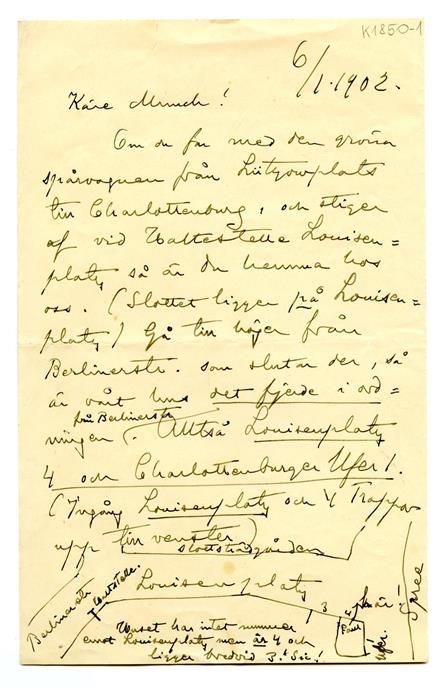 K1850-1
6/1.1902.
Käre Munch!
Om du far med den gröna
spårvagnen från Lützowplats
till Charlottenburg, och stiger
af vid Haltestelle Louisen=
platz så är du hemma hos
oss. (Slottet ligger på Louisen=
platz) Gå till höjer från
Berlinerstr. som slutar der, så
är vårt hus det fjerde i ord=
från Berlinerstr
ningen. Alltså Louisenplatz
4 och Charlottenburger Ufer 1.
(Ingång Louisenplatz och 4 Trappor
upp till venster)
slottsträdgården
Louisenplatz
Berlinerstr
Haltestelle.
3
4
Paul
här i
Ufer.
Spree
Huset har intet nummer
emot Louisenplatz men är 4 och
ligger bredvid 3.